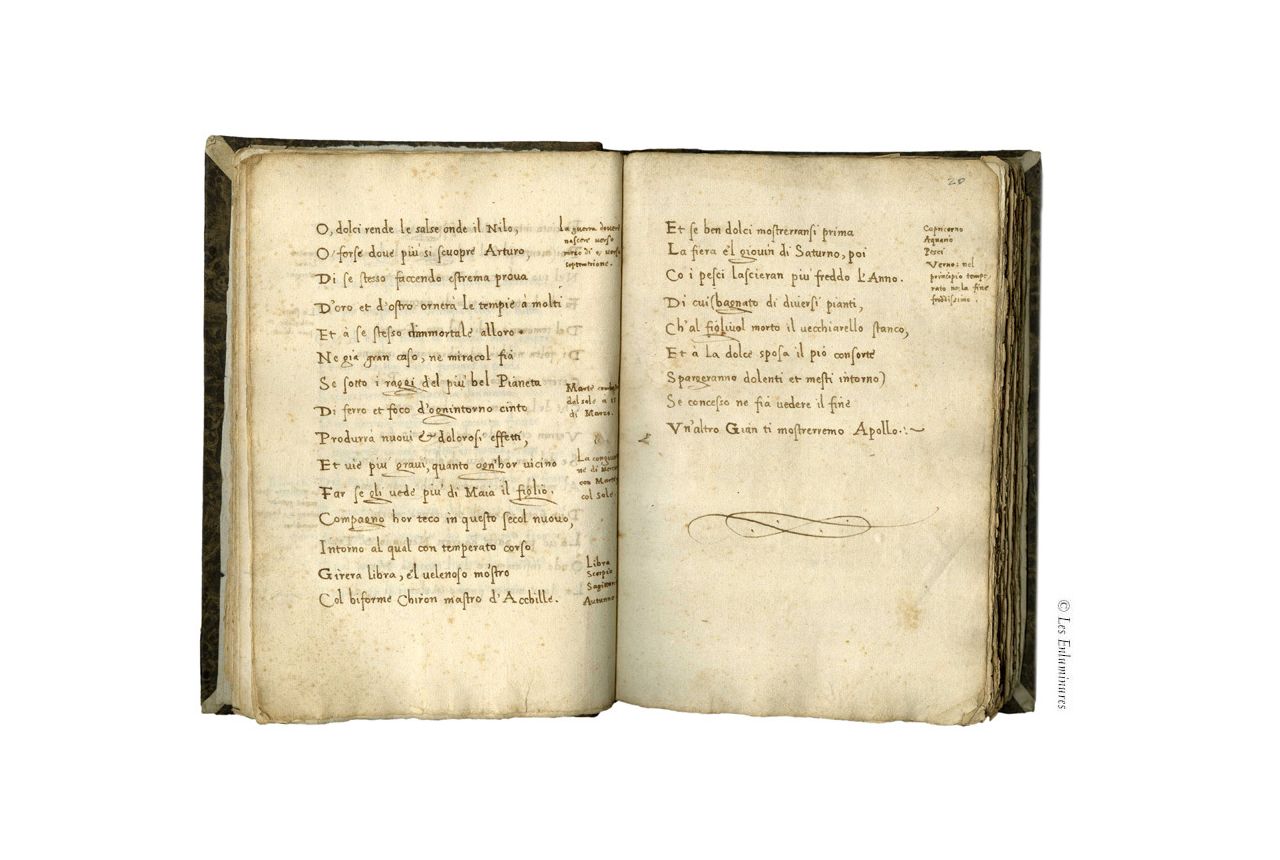 O, dolci rende le salse onde il Nilo,
O' forse doue più si scuopre Arturo
Di se stesso faccendo estrema proua
D'oro et d'ostro ornerà le tempie à molti
Et à se stesso d'immortale alloro.
Ne già gran caso, ne miracol fià
Se sotto i raggi del più bel Pianeta
Di ferro et foco d'ognintorno cinto
Produrrà nuoui & dolorosi effetti,
Et uie più graui, quanto ogn'hor uicino
Far se gli uede più di Maia il figlio.
Compagno hor teco in questo secol nuouo,
Intorno al qual con temperato corso
Girerà libra, e'l uelenoso mostro
Col biforme Chiron mastro d'Acchille.
La guerra douer
nascere uerso
mezo di e, uerso
septentrione.
Marte
del sole a
di Marzo.
La
ne di
con Marte
col Sole.
Libra
Scorpio
Autunno
20
Et se ben dolci mostrerransi prima
La fiera e'l giouin di Saturno, poi
Co i pesci lascieran più freddo l'Anno.
Di cui (bagnato di diuersi pianti,
Ch'al figliuol morto il uecchiarello stanco,
Et à la dolce sposa il pio consorte
Spargeranno dolenti et mesti intorno)
Se concesso ne fià uedere il fine
Vn'altro Gian ti mostrerremo Apollo.
Capricorno
Aquario
Pesci
Verno: nel
principio tempe
rato ne la fine
freddissimo.
© Les Enluminures